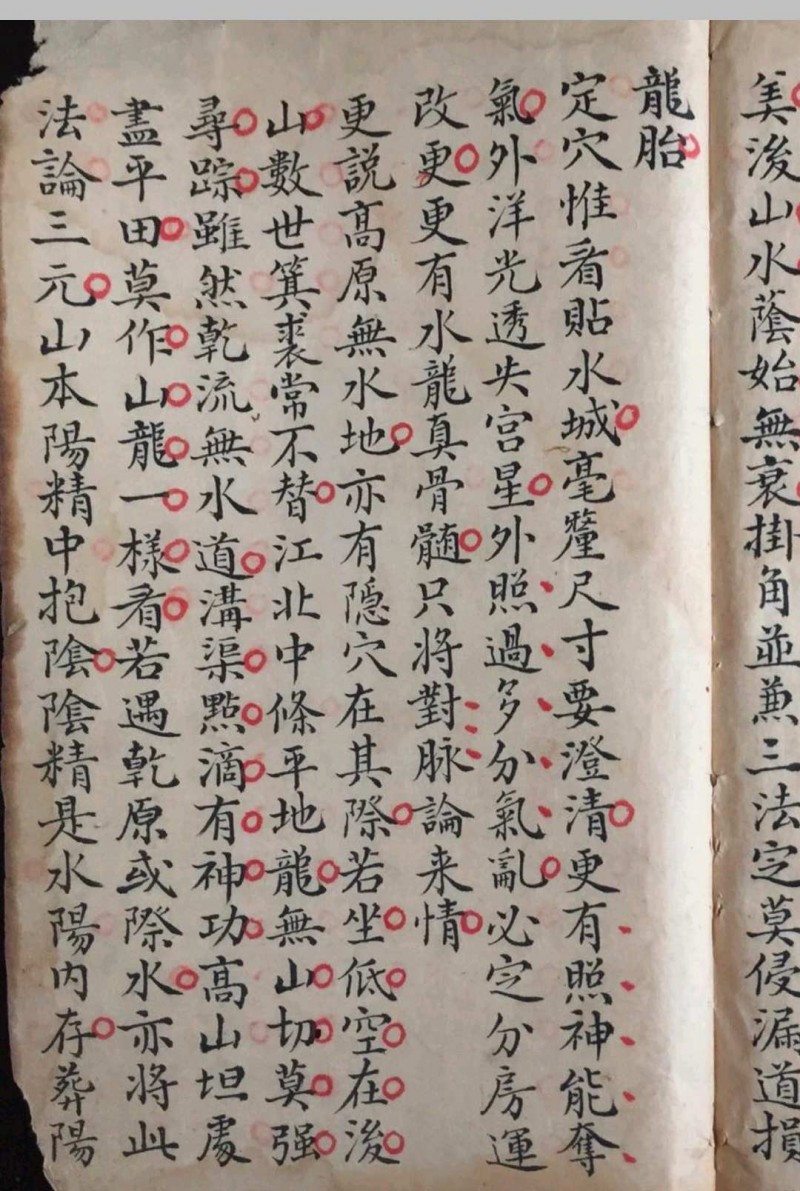 美浚山水蔭始無衰掛角並兼三法定莫侵漏道損
龍胎
定穴惟看貼水城毫釐尺寸要澄清更有照神能奪
氣外洋光透失宮星外照過多分氣亂必定分房運
改更更有水龍真骨髓只將對脉論来情
更説高原無水地亦有隠穴在其際若坐低空在浚
山數世箕裘常不替江北中條平地龍無山切莫强
尋踪雖然乾流無水道溝渠點滴有神功高山坦處
盡平田莫作山龍一樣看若遇乾原或際水亦將此
法論三元山本陽精中抱陰陰精是水陽内存葬陽